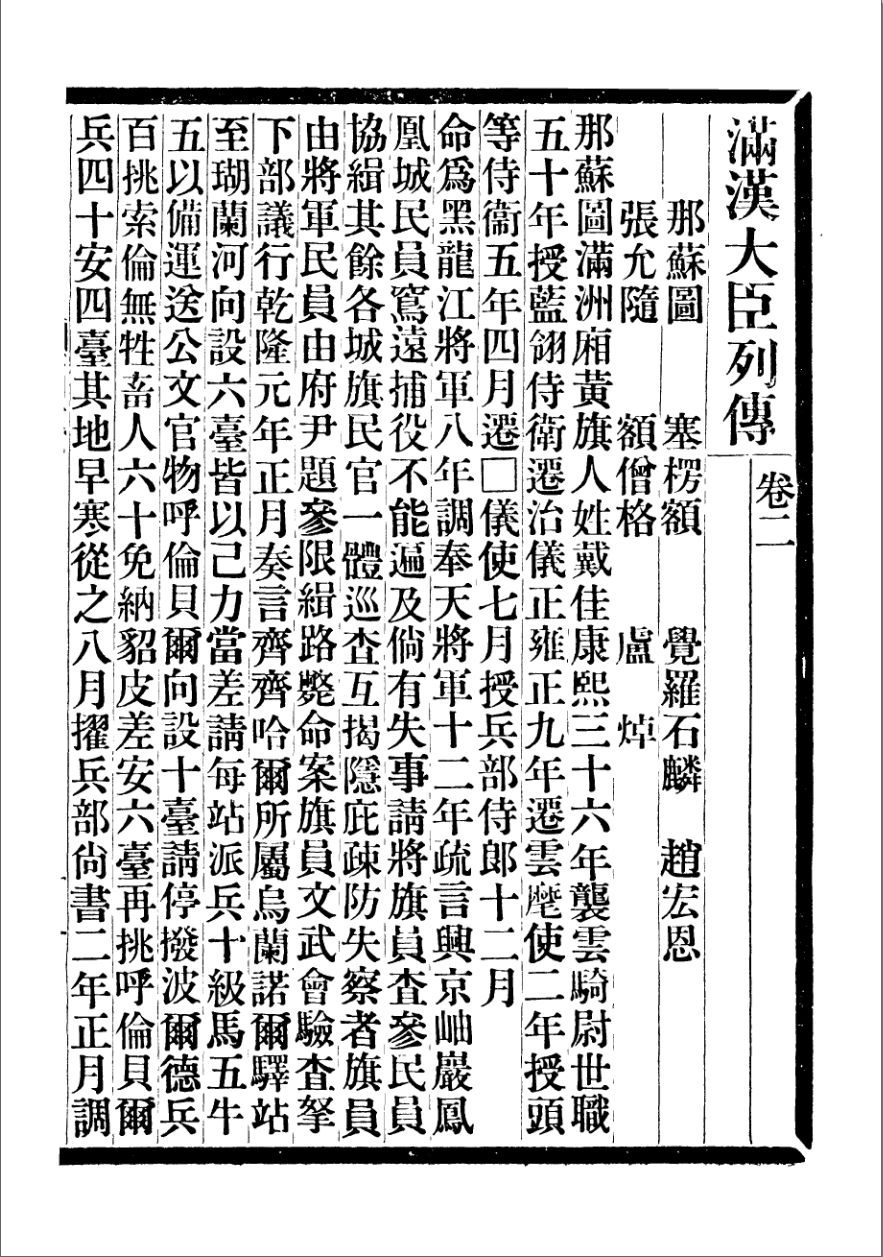 滿漢大臣列傳
卷二
那蘇圖　塞楞額　覺羅石麟　趙宏恩
張允隨　額僧格　盧焯
那蘇圖滿洲廂黃旗人姓戴佳康熙三十六年襲雲騎尉世職
五十年授藍翎侍衛遷治儀正雍正九年遷雲麾使二年授頭
等侍衞五年四月遷□儀使七月授兵部侍郎十二月
命爲黑龍江將軍八年調奉天將軍十二年疏言興京岫巖鳳
凰城民員窵遠捕役不能遍及倘有失事請將旗員查參民員
協緝其餘各城旗民官一體巡查互揭隱庇疎防失察者旗員
由將軍民員由府尹題參限緝路斃命案旗員文武會驗查拏
下部議行乾隆元年正月奏言齊齊哈爾所屬烏蘭諾爾驛站
至瑚蘭河向設六臺皆以己力當差請每站派兵十級馬五牛
五以備運送公文官物呼倫貝爾向設十臺請停撥波爾德兵
百挑索倫無牲畜人六十免納貂皮差安六臺再挑呼倫貝爾
兵四十安四臺其地早寒從之八月擢兵部尙書二年正月調